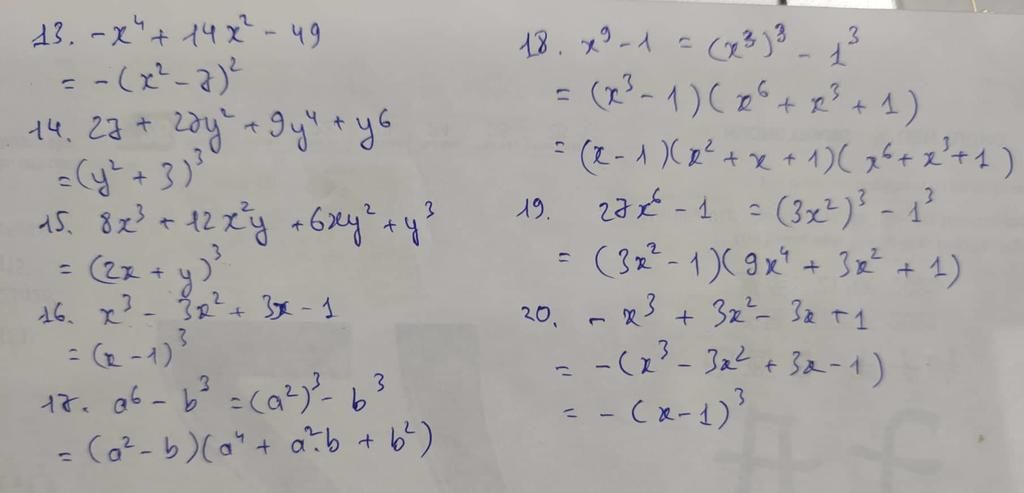 13. -x⁴ + 14x² - 49
= -(x² - 7)²
14. 27 + 27y² + 9y⁴ + y⁶
= (y² + 3)³
15. 8x³ + 12x²y + 6xy² + y³
= (2x + y)³
16. x³ - 3x² + 3x - 1
= (x - 1)³
17. a⁶ - b³ = (a²)³ - b³
= (a² - b)(a⁴ + a².b + b²)
18. x⁹ - 1 = (x³)³ - 1³
= (x³ - 1)(x⁶ + x³ + 1)
= (x - 1)(x² + x + 1)(x⁶ + x³ + 1)
19. 27x⁶ - 1 = (3x²)³ - 1³
= (3x² - 1)(9x⁴ + 3x² + 1)
20. - x³ + 3x² - 3x + 1
= -(x³ - 3x² + 3x - 1)
= - (x - 1)³